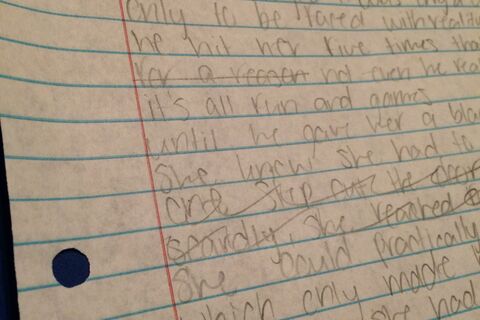 only to be faced with reality
he hit her five times tha
for a reason not even he rea
it's all fun and games
until he gave her a bla
She knew she had to
one step
she reached
She could practically
which only made
she had